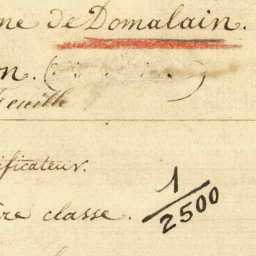 ne de Domalain.
on. (
Feuille
ificateur.
re classe.
1/2500